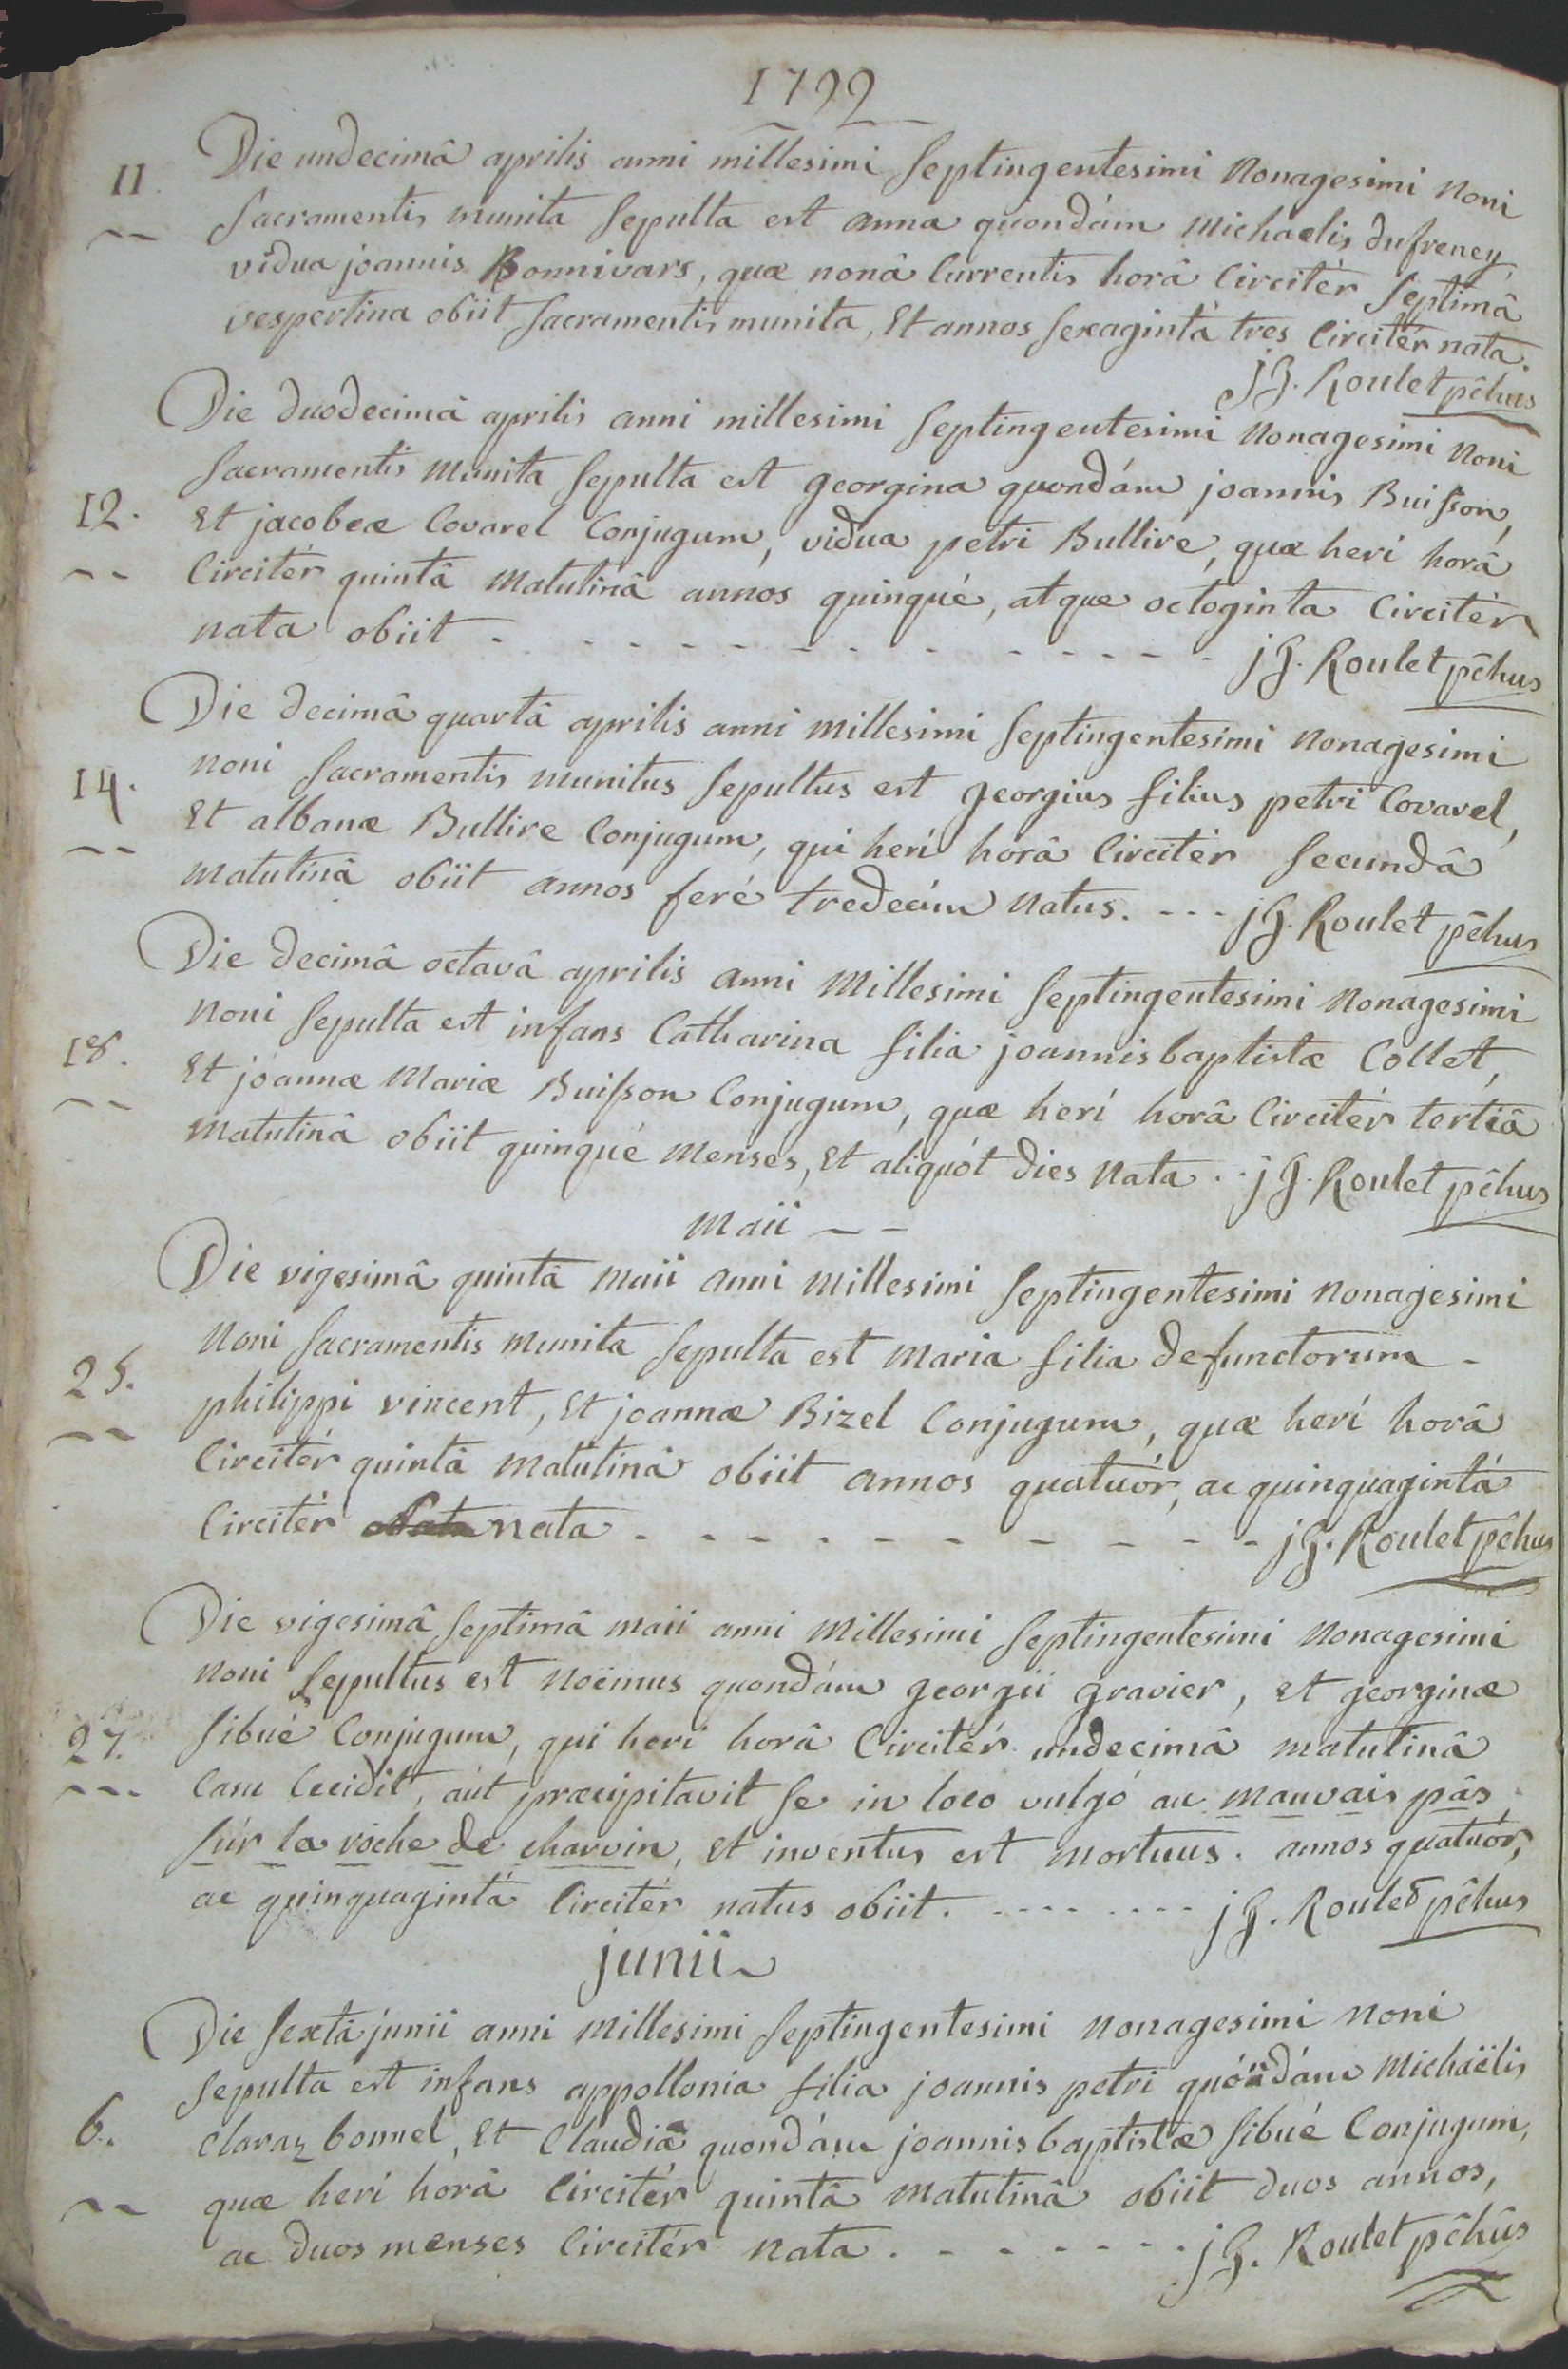 1799
11. Die undecimâ aprilis anni millesimi Septingentesimi Nonagesimi Noni
Sacramentis munita Sepulta est anna quondám Michaelis dufreney,
vidua joannis Bonnivars, quæ nonâ Currentis horâ Circitér Septimâ
vespertina obiit Sacramentis munita, Et annos Sexagintà tres Circitér nata.
jG. Roulet pêhus
Die duodecimâ aprilis anni millesimi Septingentesimi Nonagesimi Noni
Sacramentis Munita Sepulta est georgina quondám joannis Buisson,
12. Et jacobeæ Covarel Conjugum, vidua petri Bullire, quæ herí horâ
Circitér quintâ Matutinâ annós quinqué, atque octoginta Circitér
nata obiit - - - - - - - - - - - - jG. Roulet pêhus
Die decimâ quartâ aprilis anni Millesimi Septingentesimi Nonagesimi
14. Noni Sacramentis munitus Sepultus est georgius filius petri Covarel,
Et albanæ Bullire Conjugum, qui herí horâ Circitér Secundâ
Matutinâ obiit annós feré tredecím Natus. - - - jG. Roulet pêhus
Die decimâ octavâ aprilis anni Millesimi Septingentesimi Nonagesimi
Noni Sepulta est infans Catharina filia joannisbaptistæ Collet,
18. Et joannæ Mariæ Buisson Conjugum, quæ herí horâ Circitér tertiâ
Matutinâ obiit quinqué Menses, Et aliquót dies Nata . . jG. Roulet pêhus
Maii - -
Die vigesimâ quintâ Maii anni Millesimi Septingentesimi Nonagesimi
Noni Sacramentis Munita Sepulta est Maria filia defunctorum -
25. philippi vincent, Et joannæ Bizel Conjugum, quæ herí horâ
Circitér quintâ Matutinâ obiit annos quatuór, ac quinquagintá
Circitér nata - - - - - - - - - - jG. Roulet pêhus
Die vigesimâ Septimâ maii anni Millesimi Septingentesimi Nonagesimi
Noni Sepultus est Noëmus quondám georgii gravier, et georginæ
27. Sibué Conjugum, qui heri horâ Circitér undecimâ matutinâ
Casu Cecidit, aút præcipitavit Se in loco vulgó au mauvais pâs
Súr la roche de charvin, Et inventus est Mortuus. annos quatuór,
ac quinquagintá Circitér natus obiit. - - - - - - - - jG. Roulet pêhus
junii
Die Sextâ junii anni Millesimi Septingentesimi Nonagesimi Noni
Sepulta est infans appollonia filia joannis petri quóndám Michaëlis
6. Claraz bonnel, Et Claudiæ quondám joannisbaptistæ Sibué Conjugum,
quæ herí hórâ Circitér quintâ Matutinâ obiit duos annos,
ac duos menses Circitér Nata. - - - - - - - jG. Roulet pêhûs